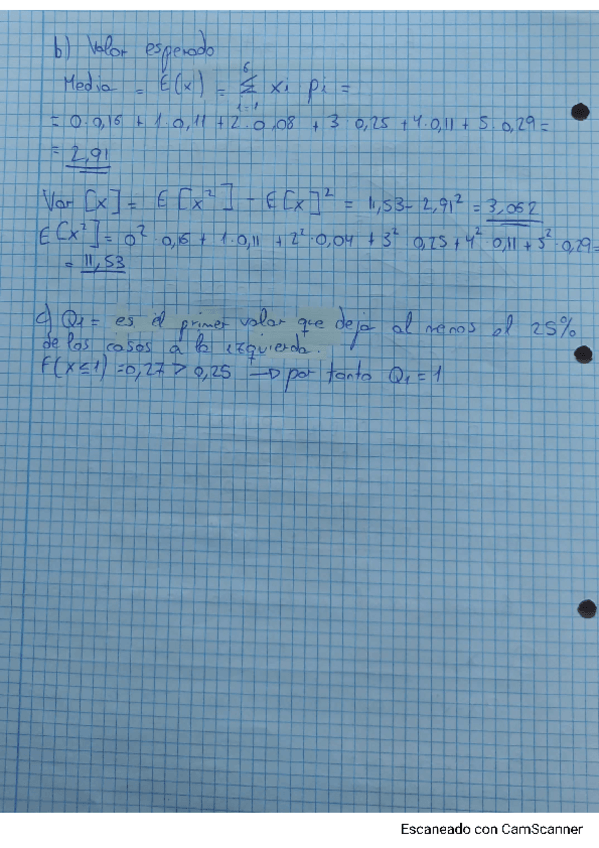 b) Valor esperado
Media = E(x) = 6 Σ i=1 xi pi =
= 0·0,16 + 1·0,11 + 2·0,08 + 3·0,25 + 4·0,11 + 5·0,29 =
= 2,91
Var [x] = E[x²] - E[x]² = 11,53 - 2,91² = 3,062
E[x²] = 0²·0,16 + 1·0,11 + 2²·0,04 + 3² 0,25 + 4²·0,11 + 5²·0,29 =
= 11,53
c) Q1 = es el primer valor que deja al menos el 25%
de los casos a la izquierda.
F(x≤1) = 0,27 > 0,25 → por tanto Q1 = 1
Escaneado con CamScanner